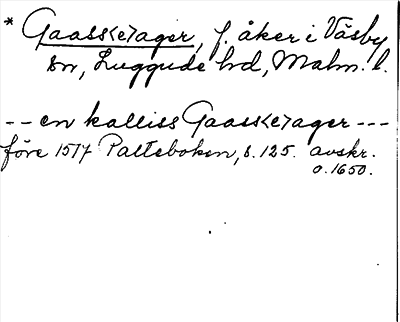 * Gaass<e>ager, f. åker i Väsby
sn, Luggude hd, Malm. l.
-- en kalliss Gaass<e>ager ---
före 1517 Palteboken, s. 125. avskr.
o. 1650.